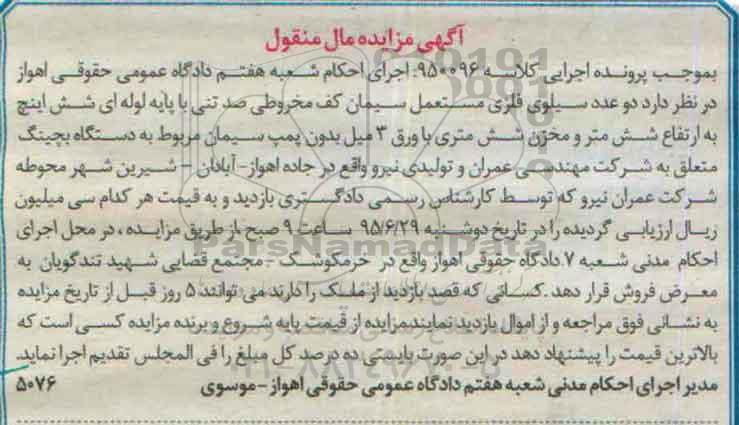 آگهی مزایده مال منقول
بموجب پرونده اجرایی کلاسه ۹۵۰۰۹۶. اجرای احکام شعبه هفتم دادگاه عمومی حقوقی اهواز
در نظر دارد دو عدد سیلوی فلزی مستعمل سیمان کف مخروطی صد تنی با پایه لوله ای شش اینچ
به ارتفاع شش متر و مخزن شش متری با ورق ۳ میل بدون پمپ سیمان مربوط به دستگاه بچینگ
متعلق به شرکت مهندسی عمران و تولیدی نیرو واقع در جاده اهواز- آبادان - شیرین شهر محوطه
شرکت عمران نیرو که توسط کارشناس رسمی دادگستری بازدید و به قیمت هر کدام سی میلیون
ریال ارزیابی گردیده را در تاریخ دوشنبه ۹۵/۶/۲۹ ساعت ۹ صبح از طریق مزایده ، در محل اجرای
احکام مدنی شعبه ۷ دادگاه حقوقی اهواز واقع در خرمکوشک - مجتمع قضایی شهید تندگویان به
معرض فروش قرار دهد .کسانی که قصد بازدید از ملک را دارند می توانند ۵ روز قبل از تاریخ مزایده
به نشانی فوق مراجعه و از اموال بازدید نمایند.مزایده از قیمت پایه شروع و برنده مزایده کسی است که
بالاترین قیمت را پیشنهاد دهد در این صورت بایستی ده درصد کل مبلغ را فی المجلس تقدیم اجرا نماید.
مدیر اجرای احکام مدنی شعبه هفتم دادگاه عمومی حقوقی اهواز - موسوی ۵۰۷۶
ParsNamadData